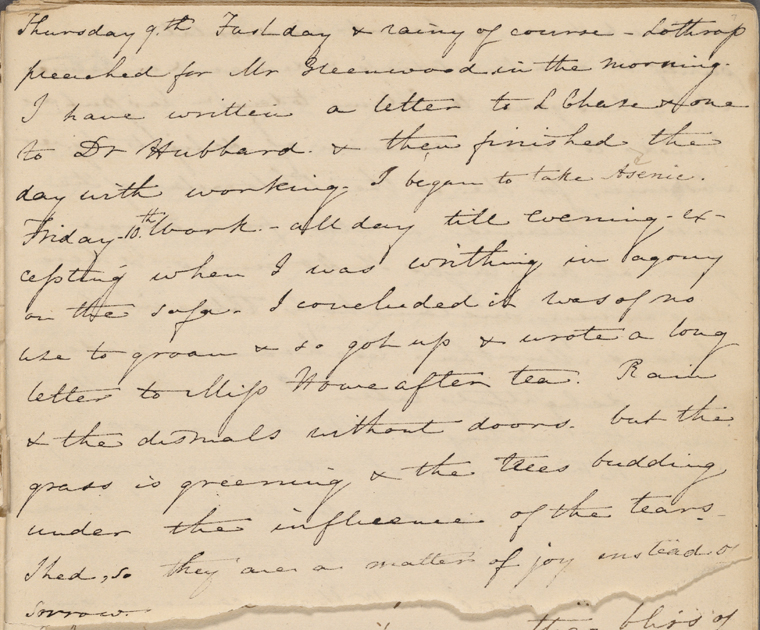 Thursday 9.th Fastday & rainy of course - Lothrop
preached for Mr Greenwood in the morning.
I have written a letter to L Chase & one
to Dr Hubbard. & then finished the
day with working. I began to take Asenic.
Friday 10.th Work. - all day till evening - ex-
cepting when I was writhing in agony
on the sofa. I concluded it was of no
use to groan & so got up & wrote a long
letter to Miss Howe after tea. Rain
& the dismals without doors. but the
grass is greening & the trees budding
under the influence of the tears
shed, so they are a matter of joy instead of
sorrow.
bliss of